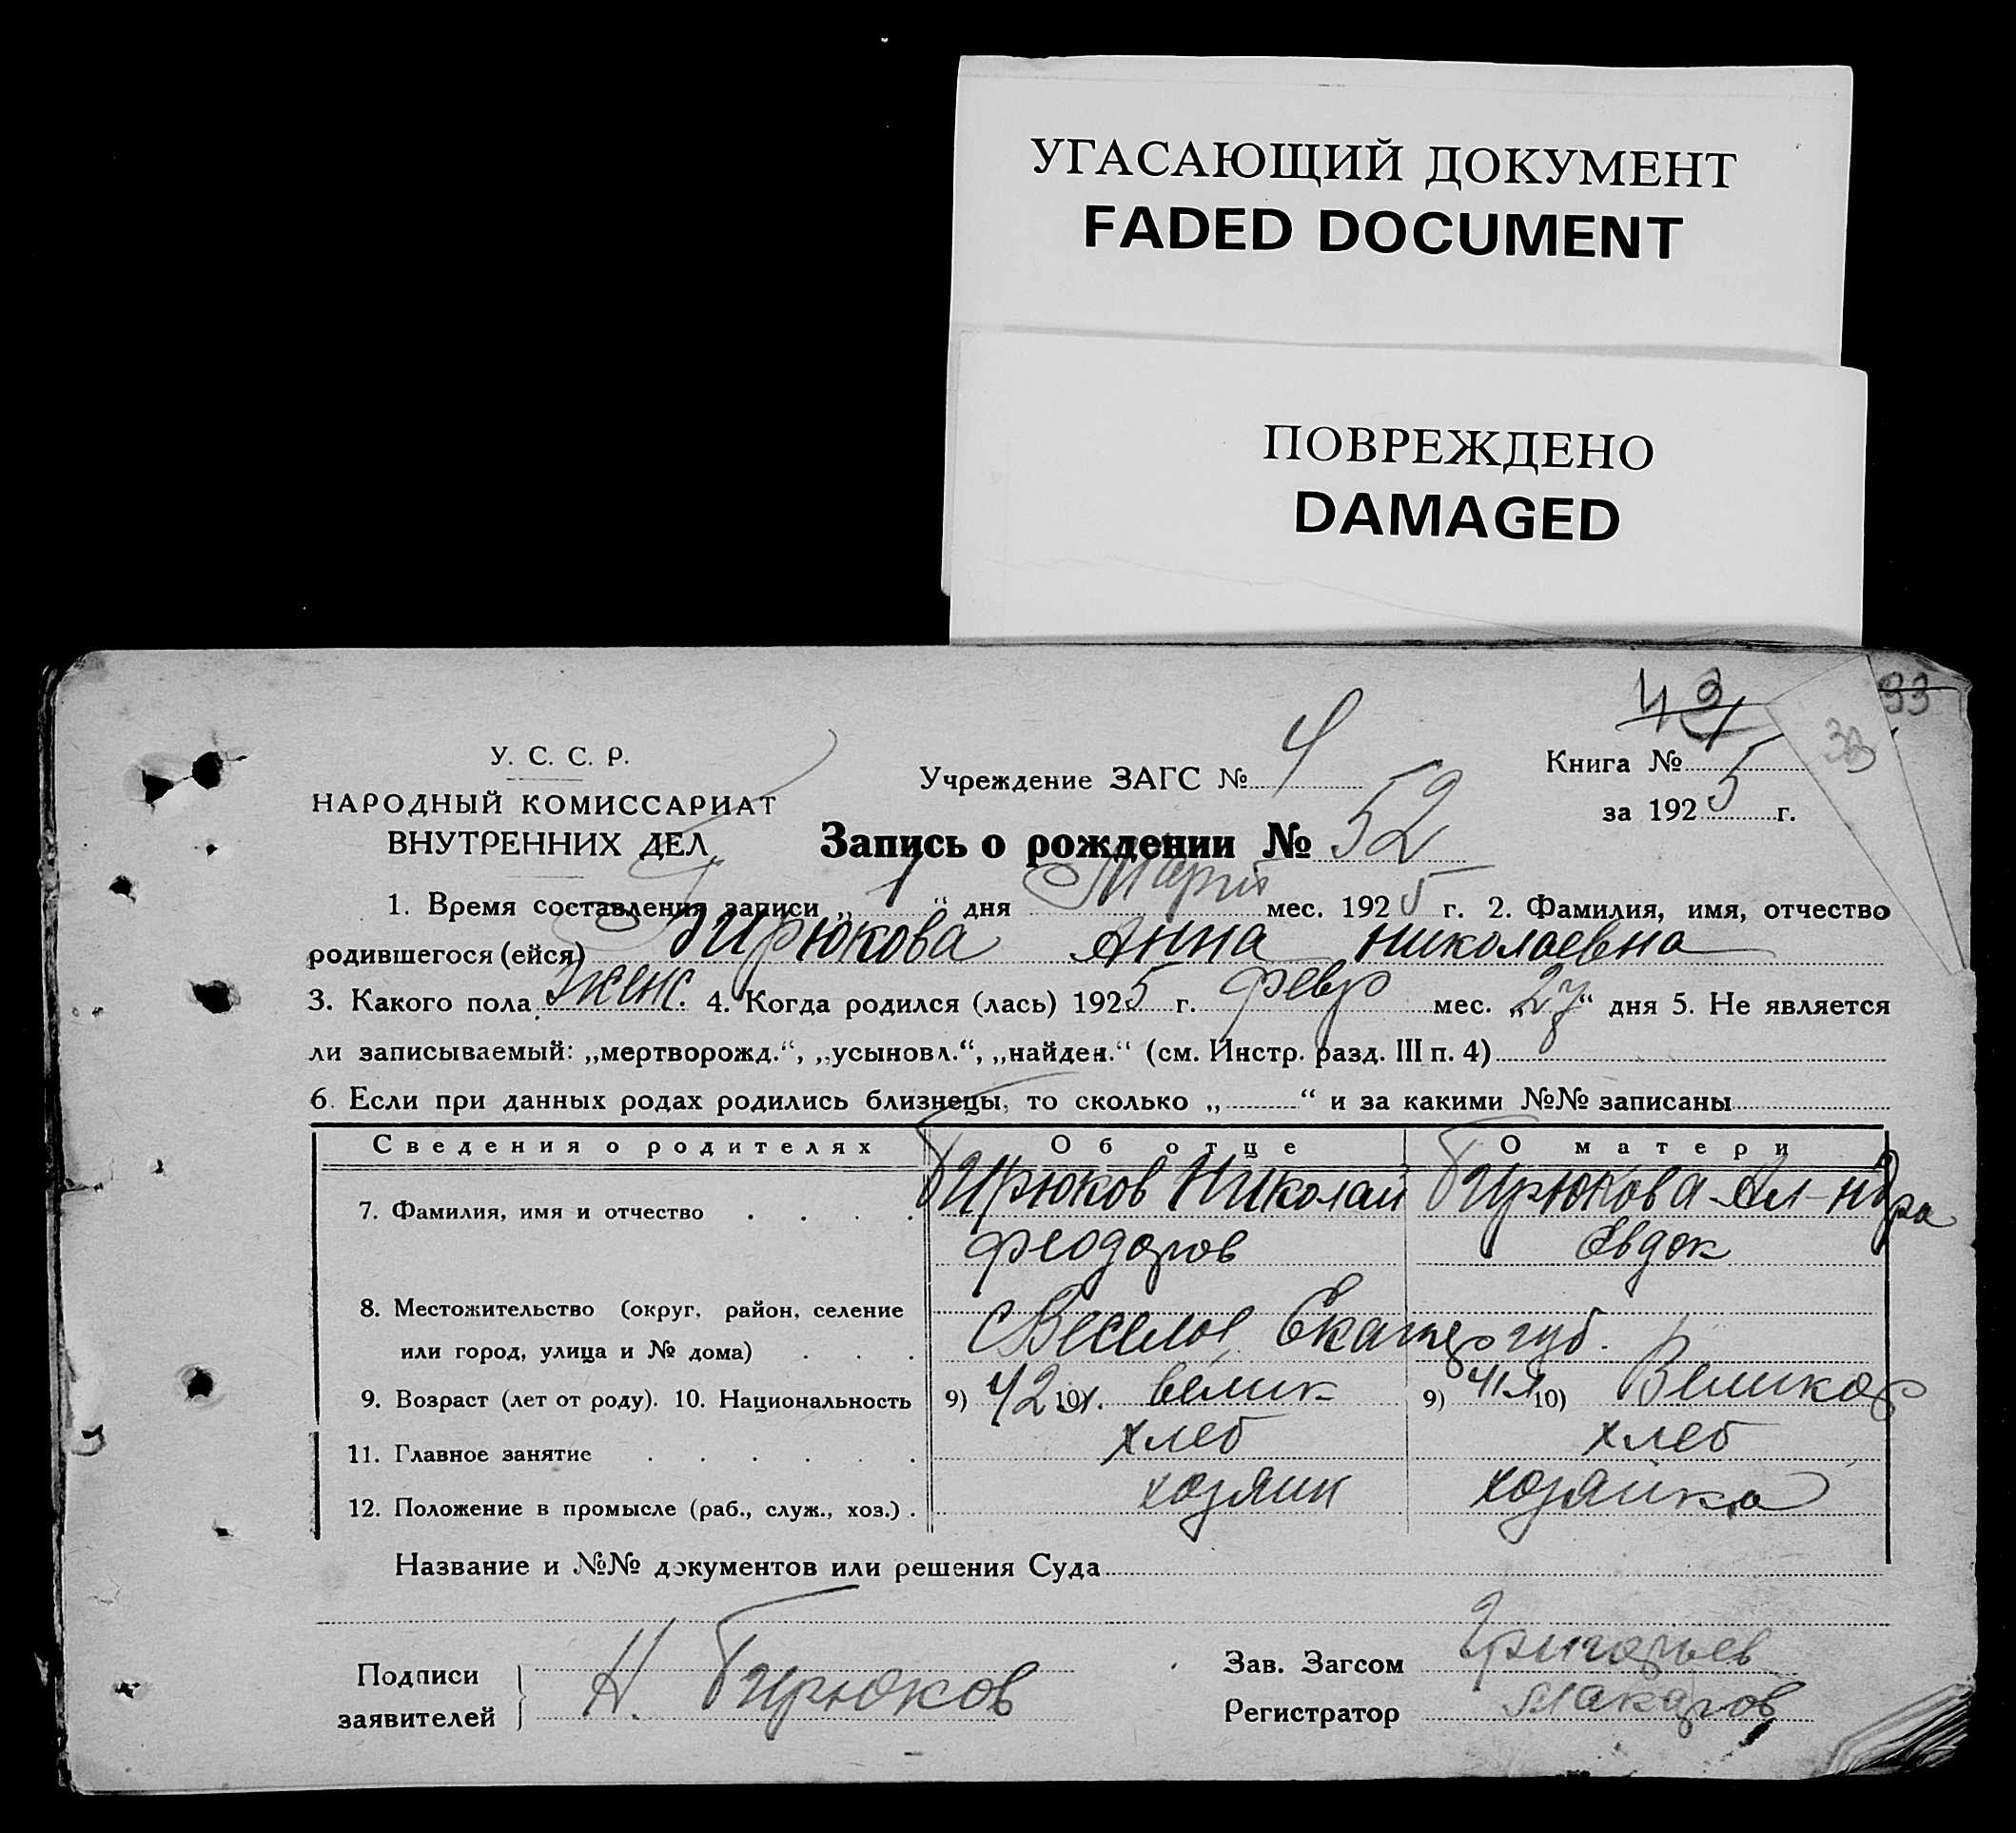 УГАСАЮЩИЙ ДОКУМЕНТ
FADED DOCUMENT
ПОВРЕЖДЕНО
DAMAGED
43 33
38
У. С. С. Р.
НАРОДНЫЙ КОМИССАРИАТ
ВНУТРЕННИХ ДЕЛ
Учреждение ЗАГС № 4
Книга № 1
за 1925 г.
Запись о рождении № 52
1. Время составления записи „ 1 “ дня Март мес. 1925 г. 2. Фамилия, имя, отчество
родившегося (ейся) Бирюкова Анна Николаевна
3. Какого пола женс. 4. Когда родился (лась) 1925 г. февр мес. „27“ дня 5. Не является
ли записываемый: „мертворожд.“, „усыновл.“, „найден.“ (см. Инстр. разд. III п. 4)
6. Если при данных родах родились близнецы, то сколько „ “ и за какими №№ записаны
Сведения о родителях Об отце О матери
7. Фамилия, имя и отчество Бирюков Николай Бирюкова Ал-ндра
Феодоров Евдок
8. Местожительство (округ, район, селение
или город, улица и № дома) с Веселое, Екатер губ.
9. Возраст (лет от роду). 10. Национальность 9) 42 10) велик 9) 41 10) Великор
11. Главное занятие хлеб хлеб
12. Положение в промысле (раб., служ., хоз.) хозяин хозяйка
Название и №№ документов или решения Суда
Подписи заявителей Н. Бирюков
Зав. Загсом Григорьев
Регистратор Макаров